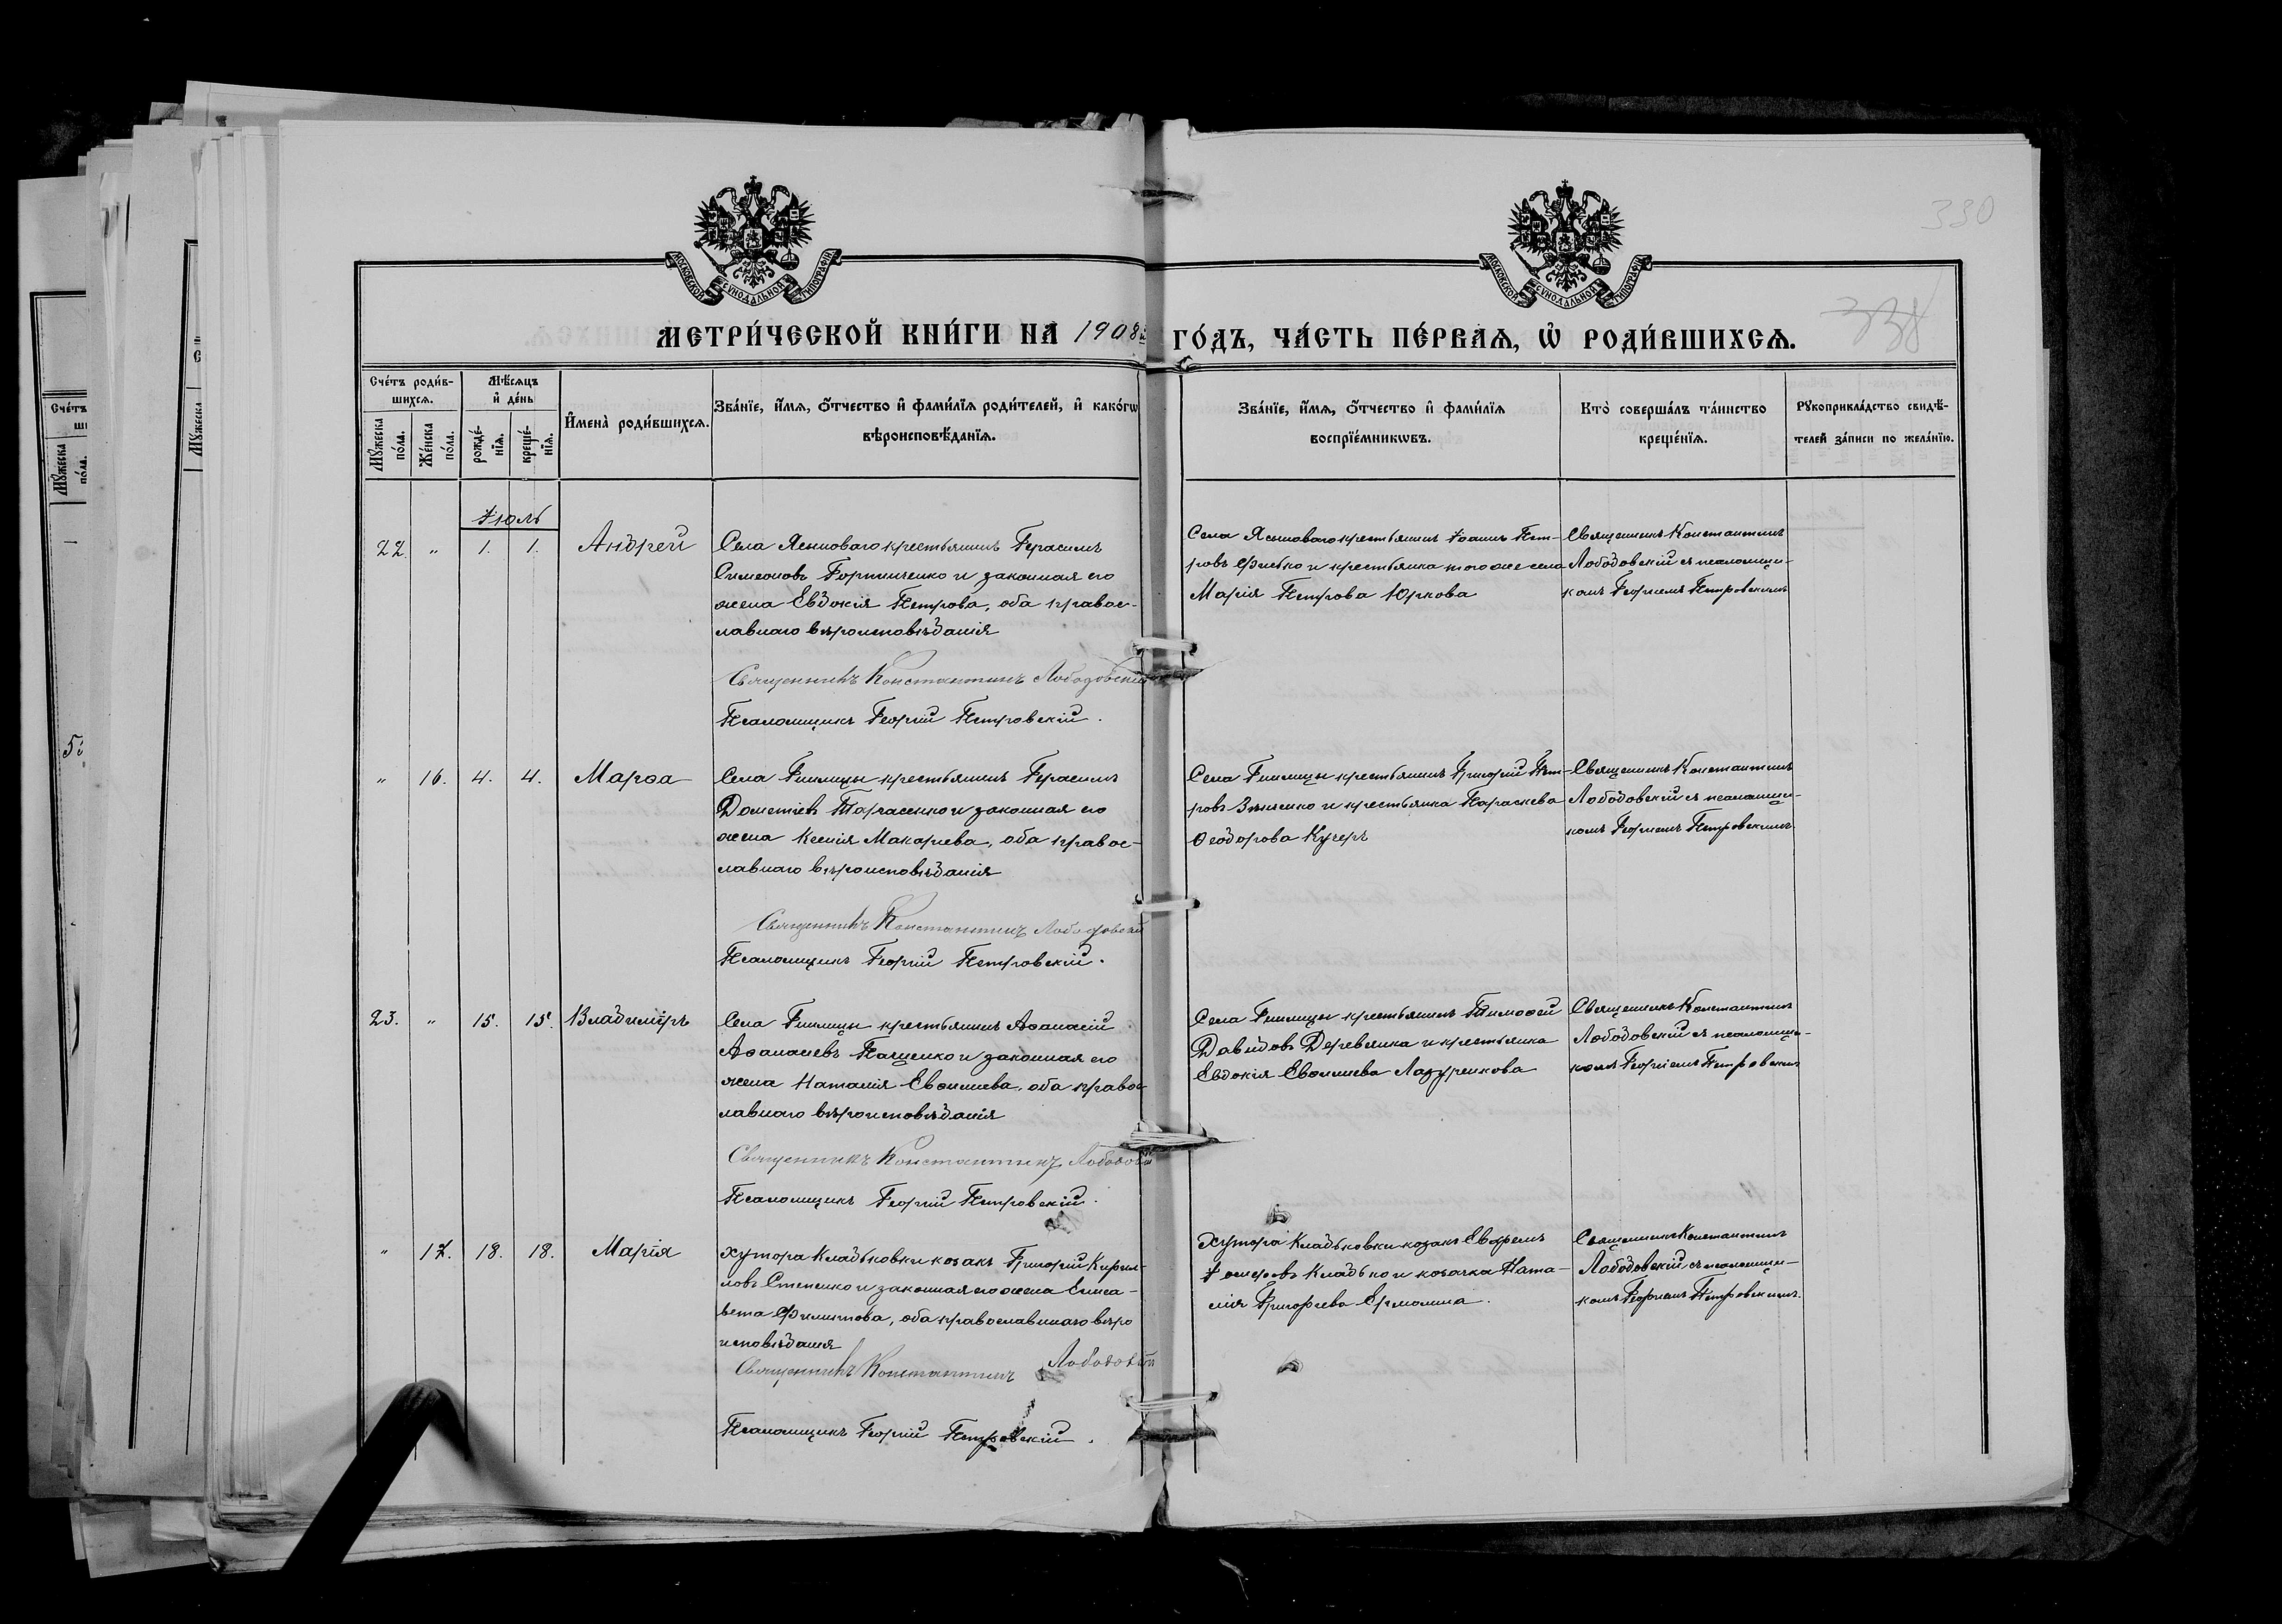 330
338
МОСКОВСКОЙ СѴНОДАЛЬНОЙ ТИПОГРАФІИ
МОСКОВСКОЙ СѴНОДАЛЬНОЙ ТИПОГРАФІИ
МЕТРИ́ЧЕСКОЙ КНИ́ГИ НА 1908й ГО́ДЪ, ЧА́СТЬ ПЕ́РВАѦ, Ѡ РОДИ́ВШИХСѦ.
Сче́тъ роди́в-
шихсѧ.
Мѣ́сѧцъ
и де́нь
Мꙋ́жеска
по́ла.
Же́нска
по́ла.
рожде́-
нїѧ.
креще́-
нїѧ.
И҆мена̀ роди́вшихсѧ.
Зва́нїе, и҆́мѧ, ѻ҆́тчество и҆ фами́лїѧ роди́телей, и҆ како́гѡ
вѣроисповѣ́данїѧ.
Зва́нїе, и҆́мѧ, ѻ҆́тчество и҆ фами́лїѧ
воспрїе́мникѡвъ.
Кто̀ соверша́лъ та́инство
креще́нїѧ.
Рꙋкоприкла́дство свидѣ́-
телей за́писи по жела́нїю.
Іюль
22. " 1. 1. Андрей
Села Ясноваго крестьянинъ Герасимъ
Симеоновъ Гортинченко и законная его
жена Евдокія Петрова, оба правос-
лавнаго вѣроисповѣданія
Священникъ Константинъ Лободовскій
Псаломщикъ Георгій Петровскій.
Села Ясноваго крестьянинъ Іоаннъ Пет-
ровъ Фисько и крестьянка того же села
Марія Петрова Юркова
Священникъ Константинъ
Лободовскій съ псаломщи-
комъ Георгіемъ Петровскимъ
" 16. 4. 4. Марѳа
Села Гнилицы крестьянинъ Герасимъ
Дометіевъ Тарасенко и законная его
жена Ксенія Макариева, оба правос-
лавнаго вѣроисповѣданія
Священникъ Константинъ Лободовскій
Псаломщикъ Георгій Петровскій.
Села Гнилицы крестьянинъ Григорій Пет-
ровъ Зинченко и крестьянка Параскева
Ѳеодорова Кучеръ
Священникъ Константинъ
Лободовскій съ псаломщи-
комъ Георгіемъ Петровскимъ
23. " 15. 15. Владиміръ
Села Гнилицы крестьянинъ Аѳанасій
Аѳанасіевъ Пащенко и законная его
жена Наталія Евѳиміева, оба правос-
лавнаго вѣроисповѣданія
Священникъ Константинъ Лободовскій
Псаломщикъ Георгій Петровскій.
Села Гнилицы крестьянинъ Тимоѳей
Давидовъ Деревянка и крестьянка
Евдокія Евѳиміева Лазуренкова
Священникъ Константинъ
Лободовскій съ псаломщи-
комъ Георгіемъ Петровскимъ
" 17. 18. 18. Марія
Хутора Кладьковки козакъ Григорій Кирил-
ловъ Степенко и законная его жена Елиса-
вета Филиппова, оба православнаго вѣро
исповѣданія
Священникъ Константинъ Лободовскій
Псаломщикъ Георгій Петровскій.
Хутора Кладьковки козакъ Евфремъ
Іосифовъ Кладько и козачка Ната-
лія Григорьева Ермолина.
Священникъ Константинъ
Лободовскій съ псаломщи-
комъ Георгіемъ Петровскимъ.